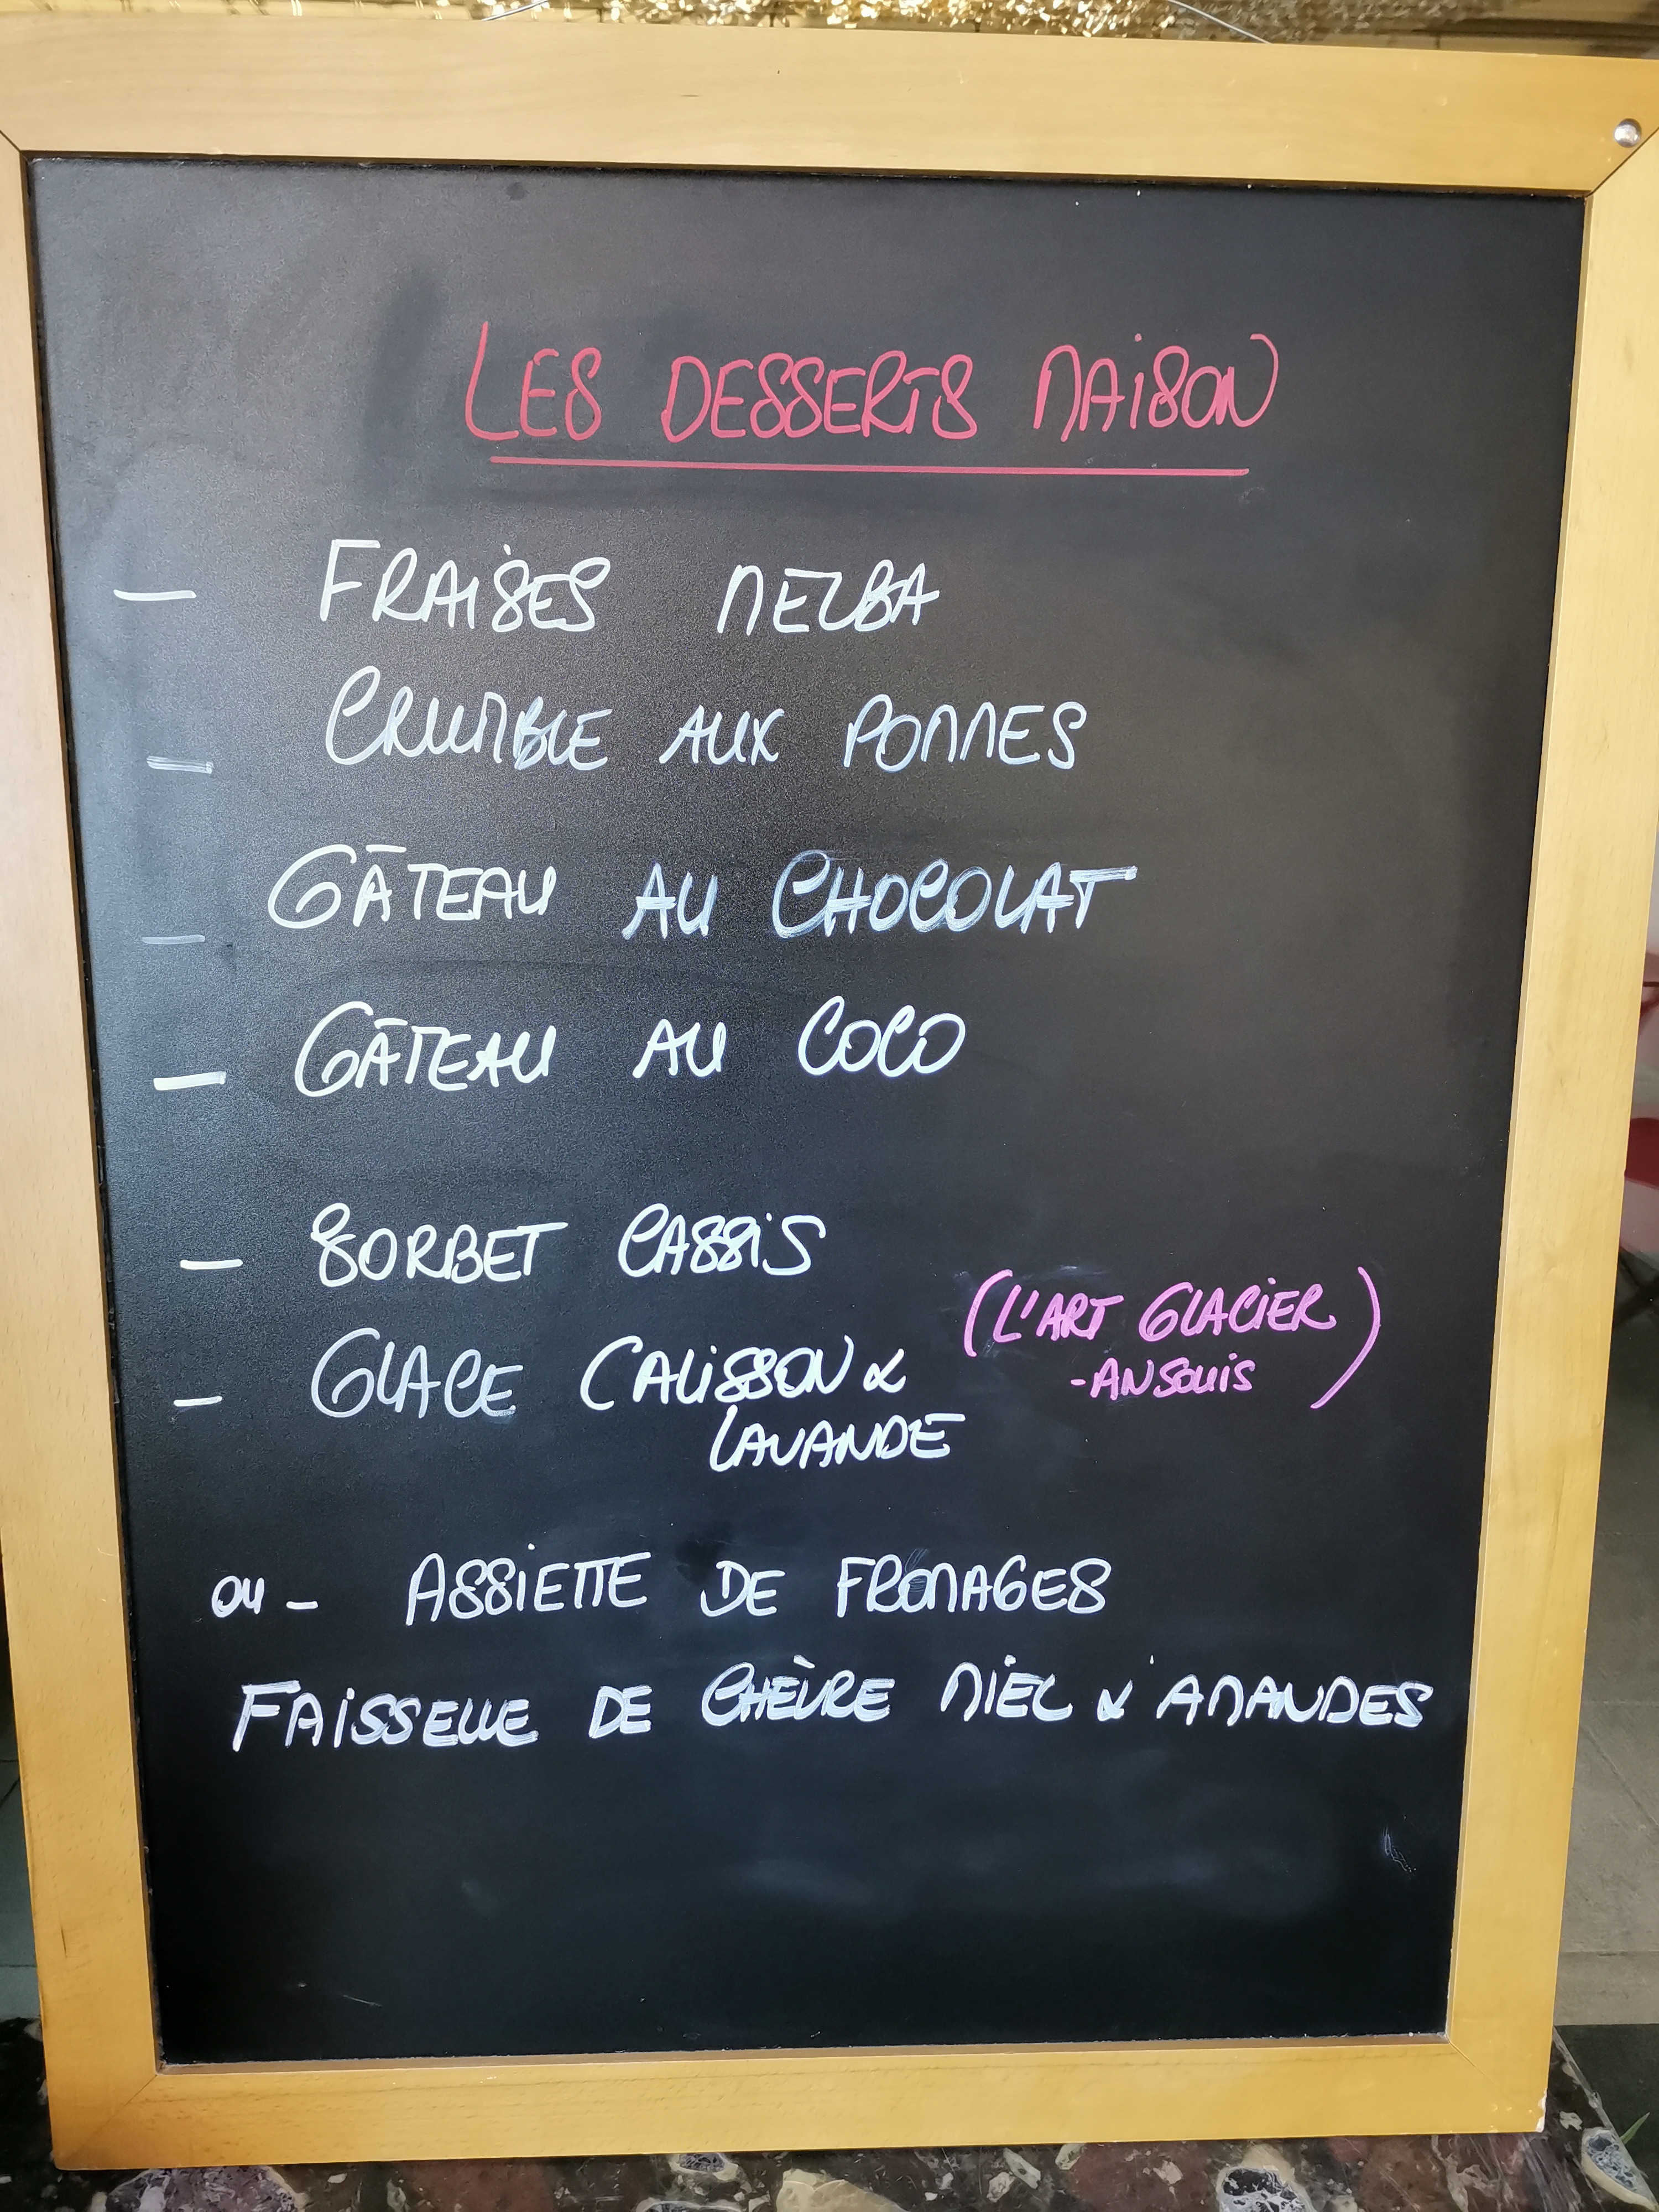 LES DESSERTS MAISON
— FRAISES MELBA
— CRUMBLE AUX POMMES
— GÂTEAU AU CHOCOLAT
— GÂTEAU AU COCO
— SORBET CASSIS
(L'ART GLACIER)
— GLACE CALISSON &
-ANSOUIS
LAVANDE
ou — ASSIETTE DE FROMAGES
FAISSELLE DE CHÈVRE MIEL & AMANDES